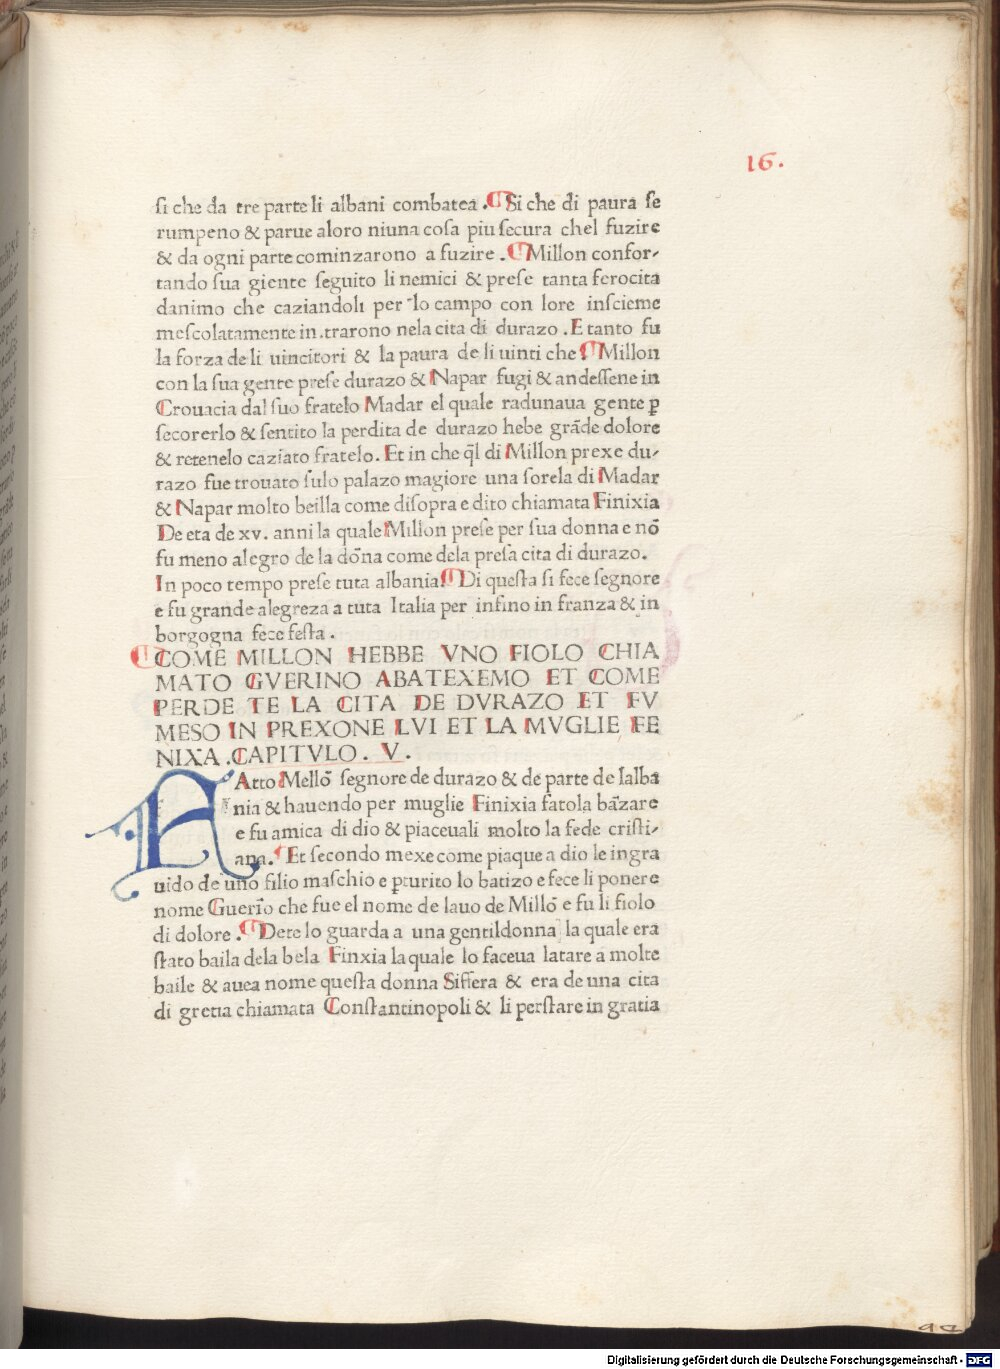 16.
si che da tre parte li albani combatea . Si che di paura se
rumpeno & parue aloro niuna cosa piu secura chel fuzire
& da ogni parte cominzarono a fuzire . Millon confor-
tando sua giente seguito li nemici & prese tanta ferocita
danimo che caziandoli per lo campo con lore inscieme
mescolatamente in.trarono nela cita di durazo . E tanto fu
la forza de li uincitori & la paura de li uinti che Millon
con la sua gente prese durazo & Napar fugi & andessene in
Crouacia dal suo fratelo Madar el quale radunaua gente ꝑ
secorerlo & sentito la perdita de durazo hebe grāde dolore
& retenelo caziato fratelo . Et in che q̄l di Millon prexe du-
razo fue trouato sulo palazo magiore una sorela di Madar
& Napar molto beilla come disopra e dito chiamata Finixia
De eta de xv. anni la quale Millon prese per sua donna e nō
fu meno alegro de la dōna come dela presa cita di durazo .
In poco tempo prese tuta albania Di questa si fece segnore
e fu grande alegreza a tuta Italia per infino in franza & in
borgogna fece festa .
COME MILLON HEBBE VNO FIOLO CHIA
MATO GVERINO ABATEXEMO ET COME
PERDE TE LA CITA DE DVRAZO ET FV
MESO IN PREXONE LVI ET LA MVGLIE FE
NIXA .CAPITVLO . V .
FAtto Mellō segnore de durazo & de parte de lalba
nia & hauendo per muglie Finixia fatola bāzare
e fu amica di dio & piaceuali molto la fede cristi-
ana. Et secondo mexe come piaque a dio le ingra
uido de uno filio maschio e pturito lo batizo e fece li ponere
nome Guerīo che fue el nome de lauo de Millō e fu li fiolo
di dolore . Dete lo guarda a una gentildonna la quale era
stato baila dela bela Finxia la quale lo faceua latare a molte
baile & auea nome questa donna Siffera & era de una cita
di gretia chiamata Constantinopoli & li perstare in gratia
Digitalisierung gefördert durch die Deutsche Forschungsgemeinschaft - DFG